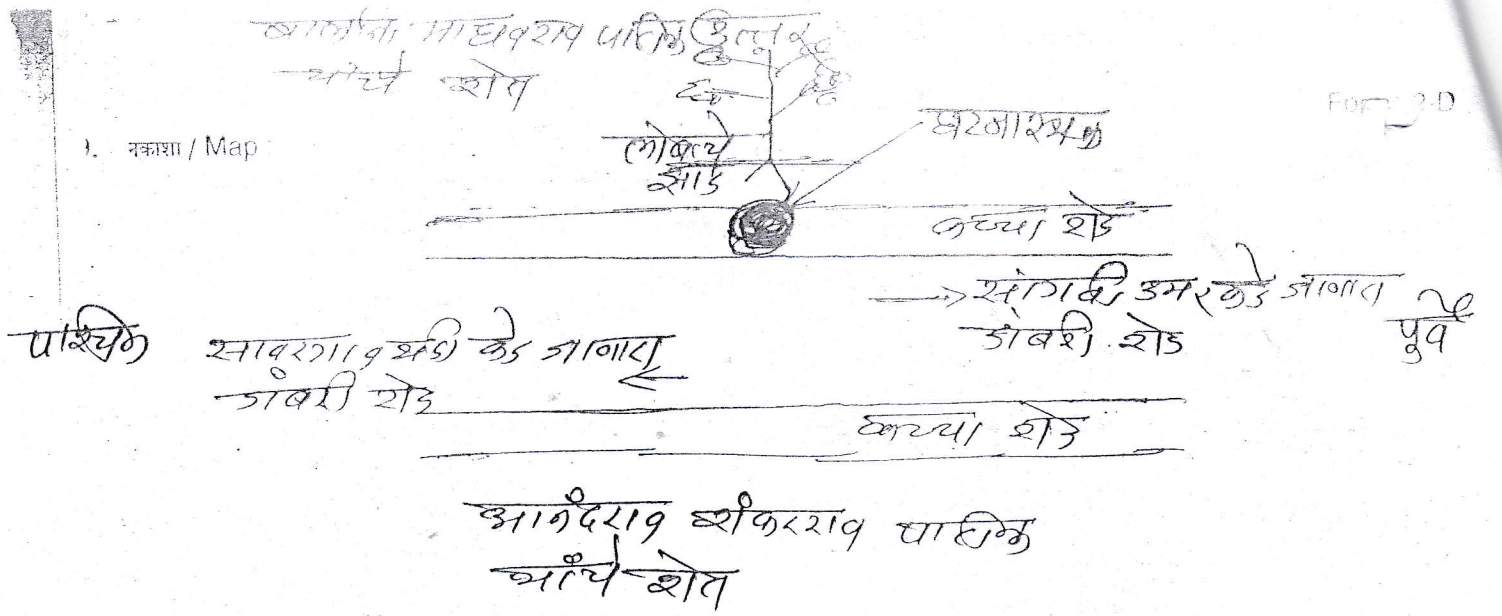 माधवराव पाटील उत्तर
यांचे शेत
Form 2-D
1. नकाशा / Map
लिंबाचे
झाड
घटनास्थळ
कच्चा रोड
→ सांगवी, उमरकडे जाणारा
डांबरी रोड
पूर्व
पश्चिम
सावरगाव कडे जाणारा
डांबरी रोड
कच्चा रोड
आनंदराव शंकरराव पाटील
यांचे शेत